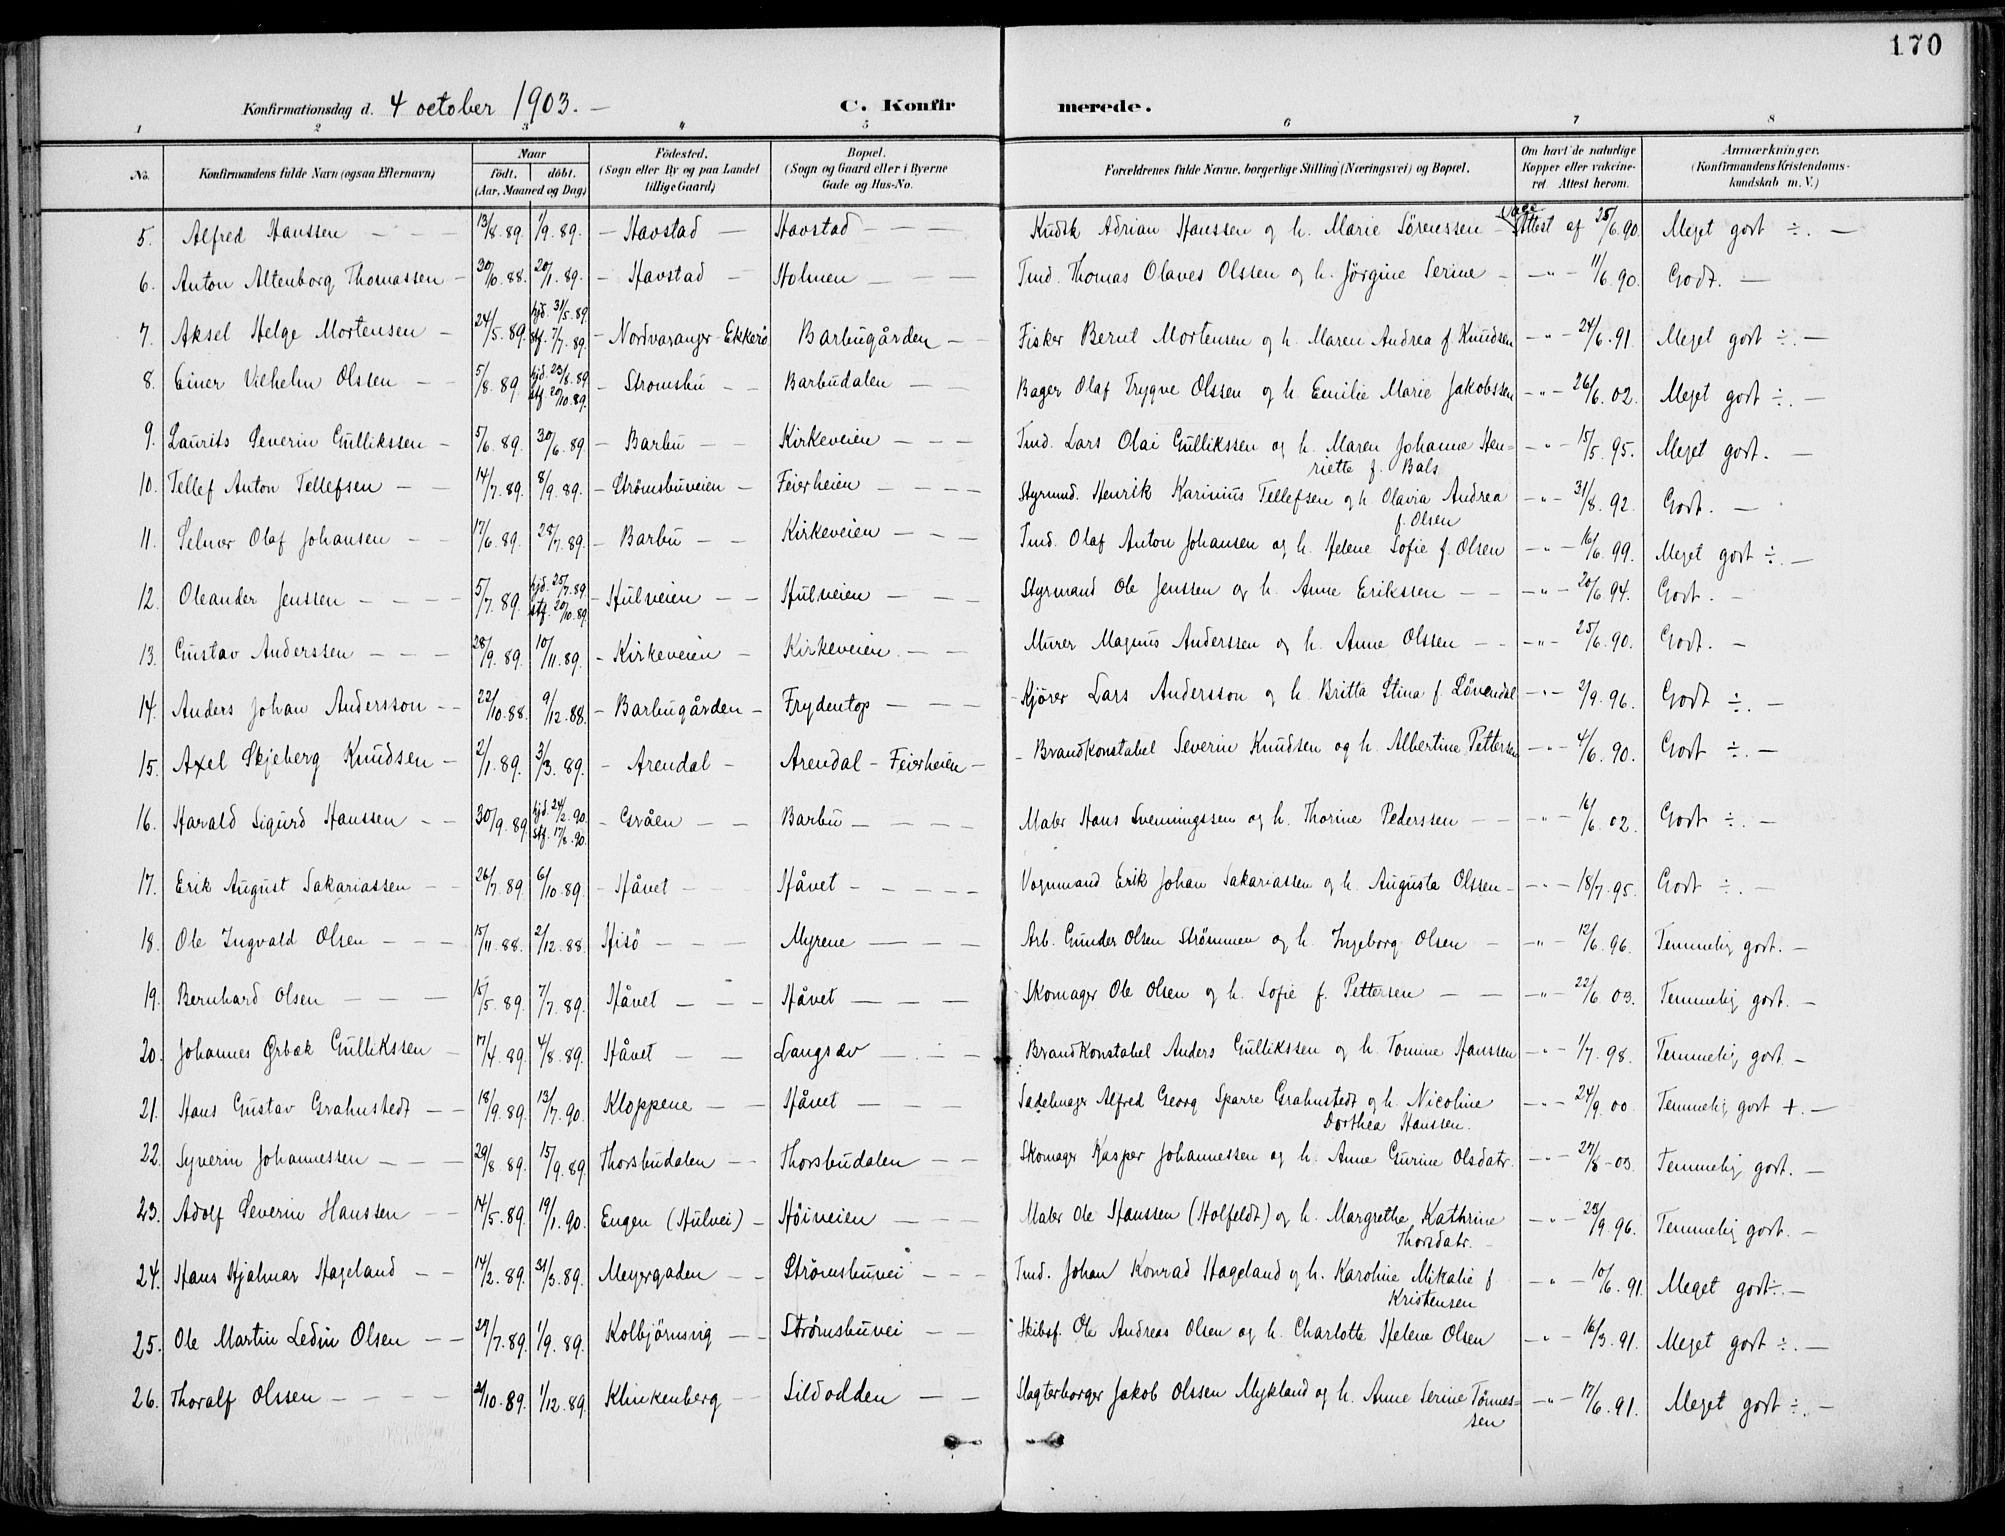 170
Konfirmationsdag d. 4 october 1903. — C. Konfir merede.
1 2 3 4 5 6 7 8
No. Konfirmandens fulde Navn (ogsaa Efternavn) Naar født. døbt. (Aar, Maaned og Dag) Fødested. (Sogn eller By og paa Landet tillige Gaard) Bopæl. (Sogn og Gaard eller i Byerne Gade og Hus-No. Forældrenes fulde Navne, borgerlige Stilling (Næringsvei) og Bopæl. Om havt de naturlige Kopper eller vakcineret. Attest herom. Anmærkninger. (Konfirmandens Kristendomskundskab m. V.)
5. Alfred Hanssen — 13/8.89. 1/9.89. — Havstad — Havstad — Kudsk Adrian Hanssen og h. Marie Sörenssen — Attest af 25/6.90. Meget godt ÷. —
6. Anton Altenborg Thomassen — 20/1.89. — Havstad — Holmen — Tmd. Thomas Olaves Olssen og h. Jörgine Serine — " — 11/6.90. Godt. —
7. Aksel Helge Mortensen — 24/5.89. hjd. 31/5.89. stf. 7/7.89. — Nordvaranger - Ekkerö Barbugården — Fisker Bernt Mortensen og h. Maren Andrea f. Knudsen — " — 24/6.91. Meget godt ÷. —
8. Einer Vilhelm Olssen — 5/8.89 hjd. 23/8.89. stf. 20/10.89. — Strømsbu — Barbudalen — Bager Olaf Trygve Olssen og h. Emilie Marie Jakobssen — " — 26/6.02. Meget godt ÷. —
9. Laurits Severin Gullikssen — 5/6.89. 30/6.89. — Barbu — Kirkeveien — Tmd. Lars Olai Gullikssen og h. Maren Johanne Hen-
riette f. Bals — " — 15/5.95. Meget godt. —
10. Tellef Anton Tellefsen — 14/7.89. 8/9.89. — Strømsbuveien — Feierheien — Styrmd. Henrik Karinius Tellefsen og h. Olavia Andrea
f. Olsen — " — 31/8.92. Godt. —
11. Selmer Olaf Johansen — 17/6.89. 28/7.89. — Barbu — Kirkeveien — Tmd. Olaf Anton Johansen og h. Helene Sofie f. Olsen — " — 16/6.99. Meget godt ÷. —
12. Oleander Jenssen — 5/7.89. hjd. 25/7.89. stf. 20/10.89. — Hulveien — Hulveien — Styrmand Ole Jenssen og h. Anne Erikssen — " — 20/6.94. Godt. —
13. Gustav Anderssen — 28/9.89. 10/11.89. — Kirkeveien — Kirkeveien. — Murer Magnus Anderssen og h. Anne Olssen — " — 25/6.90. Godt. —
14. Anders Johan Andersson — 22/10.88. 9/12.88. — Barbugården — Frydentop — Kjører Lars Andersson og h. Britta Stina f. Lövendal — " — 2/9.96. Godt ÷. —
15. Axel Skjeberg Knudsen — 2/1.89. 3/3.89. — Arendal — Arendal - Feierheien — Brandkonstabel Severin Knudsen og h. Albertine Pettersen — " — 4/6.90. Godt ÷. —
16. Harald Sigurd Hanssen — 30/9.89. hjd. 24/2.90. stf. 17/8.90. — Gråen — Barbu — Maler Hans Svenningssen og h. Thorine Pederssen — " — 16/6.02. Godt ÷. —
17. Erik August Sakariassen — 26/7.89. 6/10.89. — Håvet — Håvet — Vognmand Erik Johan Sakariassen og h. Augusta Olssen — " — 18/7.95. Godt ÷. —
18. Ole Ingvald Olsen — 15/11.88. 2/12.88. Hisö — Myrene — Arb. Gunder Olsen Strømmen og h. Ingeborg Olsen — " — 12/6.96. Temmelig godt. —
19. Bernhard Olsen — 15/5.89. 7/7.89. Håvet — Håvet — Skomager Ole Olsen og h. Sofie f. Pettersen — " — 22/6.03. Temmelig godt. —
20. Johannes Ørbæk Gullikssen — 17/4.89. 4/8.89. Håvet — Langsæv — Brandkonstabel Anders Gullikssen og h. Tomine Hanssen — " — 1/7.98. Temmelig godt. —
21. Hans Gustav Grahnstedt — 18/9.89. 13/7.90. Kloppene — Håvet — Sadelmager Alfred Georg Sparre Grahnstedt og h. Nicoline
Dorthea Hanssen. — " — 24/9.00. Temmelig godt +. —
22. Syverin Johannessen — 29/8.89. 15/9.89. Thorsbudalen — Thorsbudalen — Skomager Kasper Johannessen og h. Anne Gurine Olsdatr. — " — 27/8-03. Temmelig godt. —
23. Adolf Severin Hanssen — 14/5.89. 19/1.90. Engen (Hulvei) — Høiveien — Maler Ole Hanssen (Holfeldt) og h. Margrethe Kathrine
Thorsdatr. — " — 23/9.96. Temmelig godt. —
24. Hans Hjalmar Hageland — 14/2.89. 31/3.89. Meyergaden — Strømsbuvei — Tmd. Johan Konrad Hageland og h. Karoline Mikalie f.
Kristensen — " — 10/6.91. Meget godt ÷. —
25. Ole Martin Ledin Olsen — 27/7.89. 1/9.89. Kolbjörnsvig — Strømsbuvei — Skibsf. Ole Andreas Olsen og h. Charlotte Helene Olsen — " — 16/3.91. Meget godt ÷. —
26. Thoralf Olssen — 1/12.89. Klinkenberg — Sildodden — Slagterborger Jakob Olssen Mykland og h. Anne Serine Tönnes-
sen — " — 17/6.91. Meget godt ÷. —